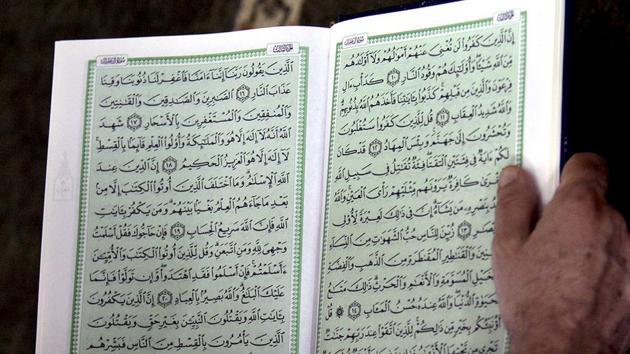 إِنَّ الَّذِينَ كَفَرُوا لَن تُغْنِيَ عَنْهُمْ أَمْوَالُهُمْ وَلَا أَوْلَادُهُم
مِّنَ اللَّهِ شَيْئًا وَأُولَٰئِكَ هُمْ وَقُودُ النَّارِ ١٠ كَدَأْبِ ءَالِ
فِرْعَوْنَ وَالَّذِينَ مِن قَبْلِهِمْ كَذَّبُوا بِـَٔايَٰتِنَا فَأَخَذَهُمُ اللَّهُ بِذُنُوبِهِمْ
وَاللَّهُ شَدِيدُ الْعِقَابِ ١١ قُل لِّلَّذِينَ كَفَرُوا سَتُغْلَبُونَ
وَتُحْشَرُونَ إِلَىٰ جَهَنَّمَ وَبِئْسَ الْمِهَادُ ١٢ قَدْ كَانَ
لَكُمْ ءَايَةٌ فِي فِئَتَيْنِ الْتَقَتَا فِئَةٌ تُقَٰتِلُ فِي سَبِيلِ اللَّهِ
كَافِرَةٌ يَرَوْنَهُم مِّثْلَيْهِمْ رَأْيَ الْعَيْنِ وَاللَّهُ
بِنَصْرِهِ مَن يَشَاءُ إِنَّ فِي ذَٰلِكَ لَعِبْرَةً لِّأُولِي
١٣ زُيِّنَ لِلنَّاسِ حُبُّ الشَّهَوَٰتِ مِنَ النِّسَاءِ
وَالْقَنَٰطِيرِ الْمُقَنطَرَةِ مِنَ الذَّهَبِ وَالْفِضَّةِ
الْمُسَوَّمَةِ وَالْأَنْعَٰمِ وَالْحَرْثِ ذَٰلِكَ مَتَٰعُ
الدُّنْيَا وَاللَّهُ عِندَهُ حُسْنُ الْمَـَٔابِ ١٤
بِخَيْرٍ مِّن ذَٰلِكُمْ لِلَّذِينَ اتَّقَوْا عِندَ رَبِّهِمْ جَنَّٰتٌ
الَّذِينَ يَقُولُونَ رَبَّنَا إِنَّنَا ءَامَنَّا فَاغْفِرْ لَنَا ذُنُوبَنَا وَقِنَا
عَذَابَ النَّارِ ١٦ الصَّٰبِرِينَ وَالصَّٰدِقِينَ وَالْقَٰنِتِينَ
وَالْمُنفِقِينَ وَالْمُسْتَغْفِرِينَ بِالْأَسْحَارِ ١٧ شَهِدَ
اللَّهُ أَنَّهُ لَا إِلَٰهَ إِلَّا هُوَ وَالْمَلَٰئِكَةُ وَأُولُوا الْعِلْمِ قَائِمًا بِالْقِسْطِ
لَا إِلَٰهَ إِلَّا هُوَ الْعَزِيزُ الْحَكِيمُ ١٨ إِنَّ الدِّينَ عِندَ
اللَّهِ الْإِسْلَٰمُ وَمَا اخْتَلَفَ الَّذِينَ أُوتُوا الْكِتَٰبَ إِلَّا مِن
بَعْدِ مَا جَاءَهُمُ الْعِلْمُ بَغْيًا بَيْنَهُمْ وَمَن يَكْفُرْ بِـَٔايَٰتِ
اللَّهِ فَإِنَّ اللَّهَ سَرِيعُ الْحِسَابِ ١٩ فَإِنْ حَاجُّوكَ فَقُلْ أَسْلَمْتُ
وَجْهِيَ لِلَّهِ وَمَنِ اتَّبَعَنِ وَقُل لِّلَّذِينَ أُوتُوا الْكِتَٰبَ وَالْأُمِّيِّينَ
ءَأَسْلَمْتُمْ فَإِنْ أَسْلَمُوا فَقَدِ اهْتَدَوا وَّإِن تَوَلَّوْا فَإِنَّمَا
عَلَيْكَ الْبَلَٰغُ وَاللَّهُ بَصِيرٌ بِالْعِبَادِ ٢٠ إِنَّ الَّذِينَ يَكْفُرُونَ
بِـَٔايَٰتِ اللَّهِ وَيَقْتُلُونَ النَّبِيِّينَ بِغَيْرِ حَقٍّ وَيَقْتُلُونَ
الَّذِينَ يَأْمُرُونَ بِالْقِسْطِ مِنَ النَّاسِ فَبَشِّرْهُم